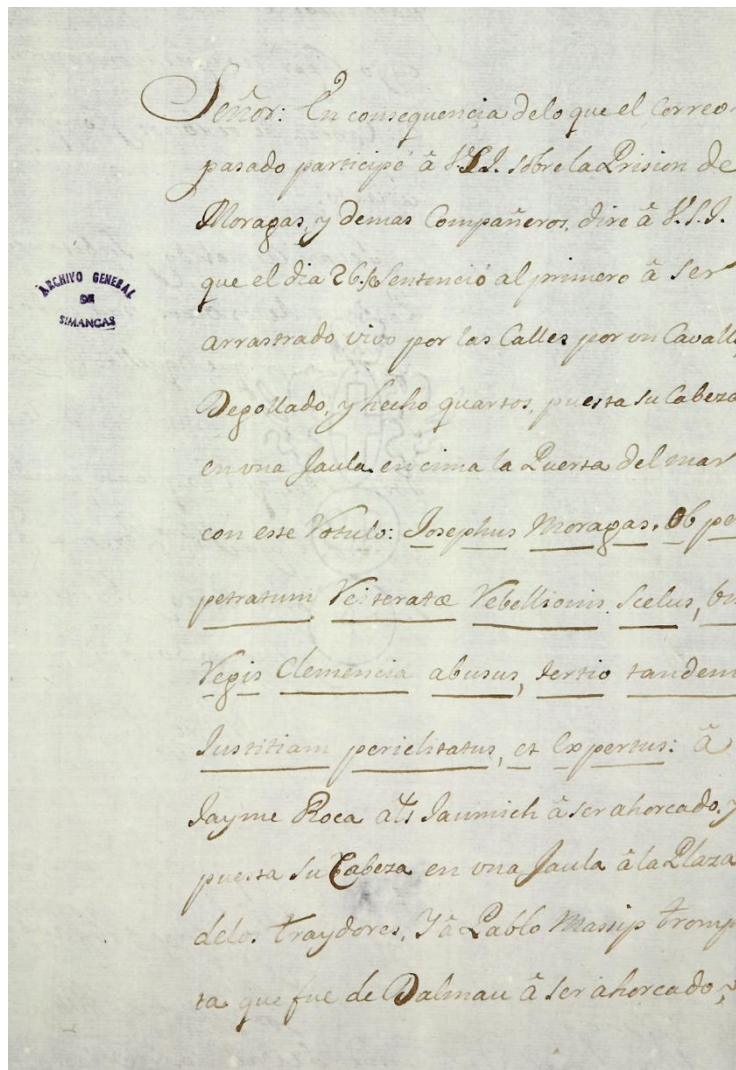 ARCHIVO GENERAL
DE
SIMANCAS
Señor: En consequencia delo que el Correo
pasado participè â V.S.I. sobre la Prision de
Moragas, y demas Compañeros, dire â V.S.I.
que el dia 26. se Sentenciò al primero â ser
arrastrado vivo por las Calles por un Cavall
Degollado, y hecho quartos, puesta su Cabeza
en vna Jaula encima la Puerta del mar
con esse Rotulo: Josephus Moragas. Ob per
petratum Reiteratæ Rebellionis Scelus, bis
Regis Clemencia abusus, tertio tandem
Justitiam periclitatus, et Expertus: â
Jayme Roca als Jaumich â ser ahorcado, y
puesta su Cabeza en vna Jaula â la Plaza
delos traydores, Y â Pablo Massip tromp
ta que fue de Dalmau â ser ahorcado,